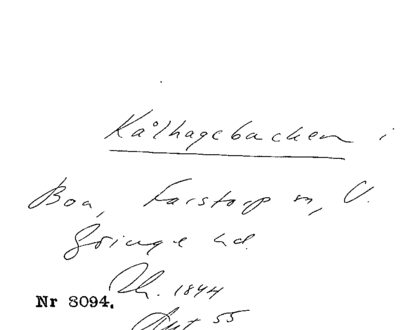 Kålhagebacken i
Boa, Farstorp sn, V.
Göinge hd.
Nr 8094. Th. 1844
Ant 55